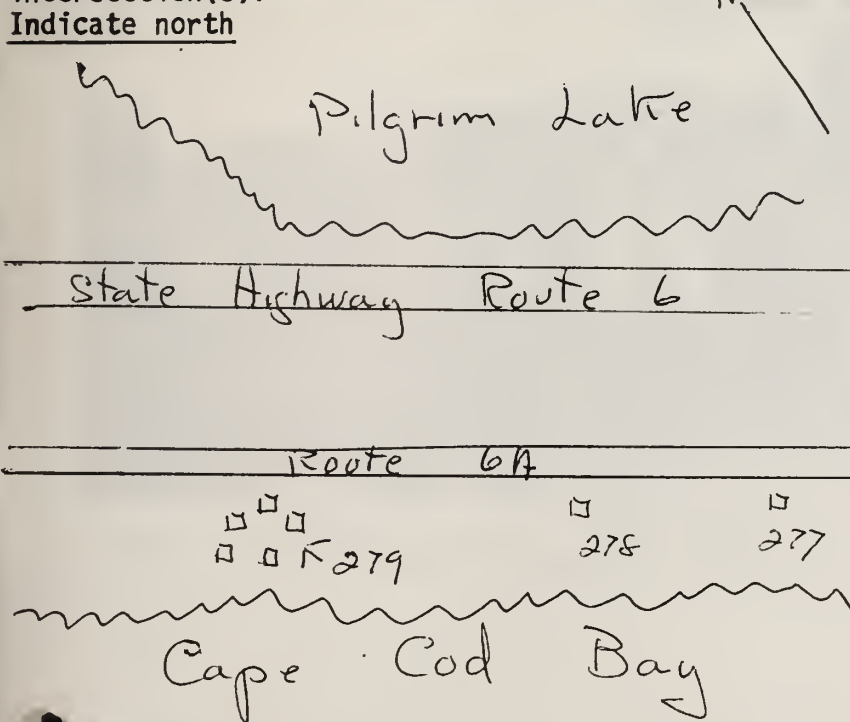 Indicate north
Pilgrim Lake
State Highway Route 6
Route 6A
279
278
277
Cape Cod Bay